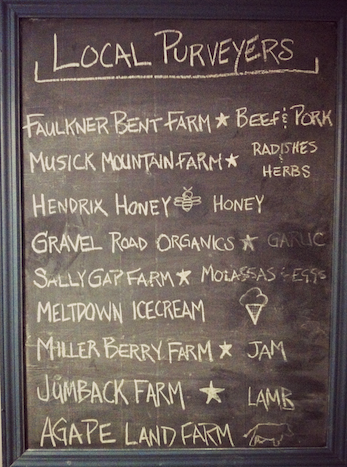 LOCAL PURVEYERS
FAULKNER BENT FARM ★ BEEF & PORK
MUSICK MOUNTAIN FARM ★ RADISHES
HERBS
HENDRIX HONEY HONEY
GRAVEL ROAD ORGANICS ★ GARLIC
SALLY GAP FARM ★ MOLASSAS & EGGS
MELTDOWN ICECREAM
MILLER BERRY FARM ★ JAM
JUMBACK FARM ★ LAMB
AGAPE LAND FARM